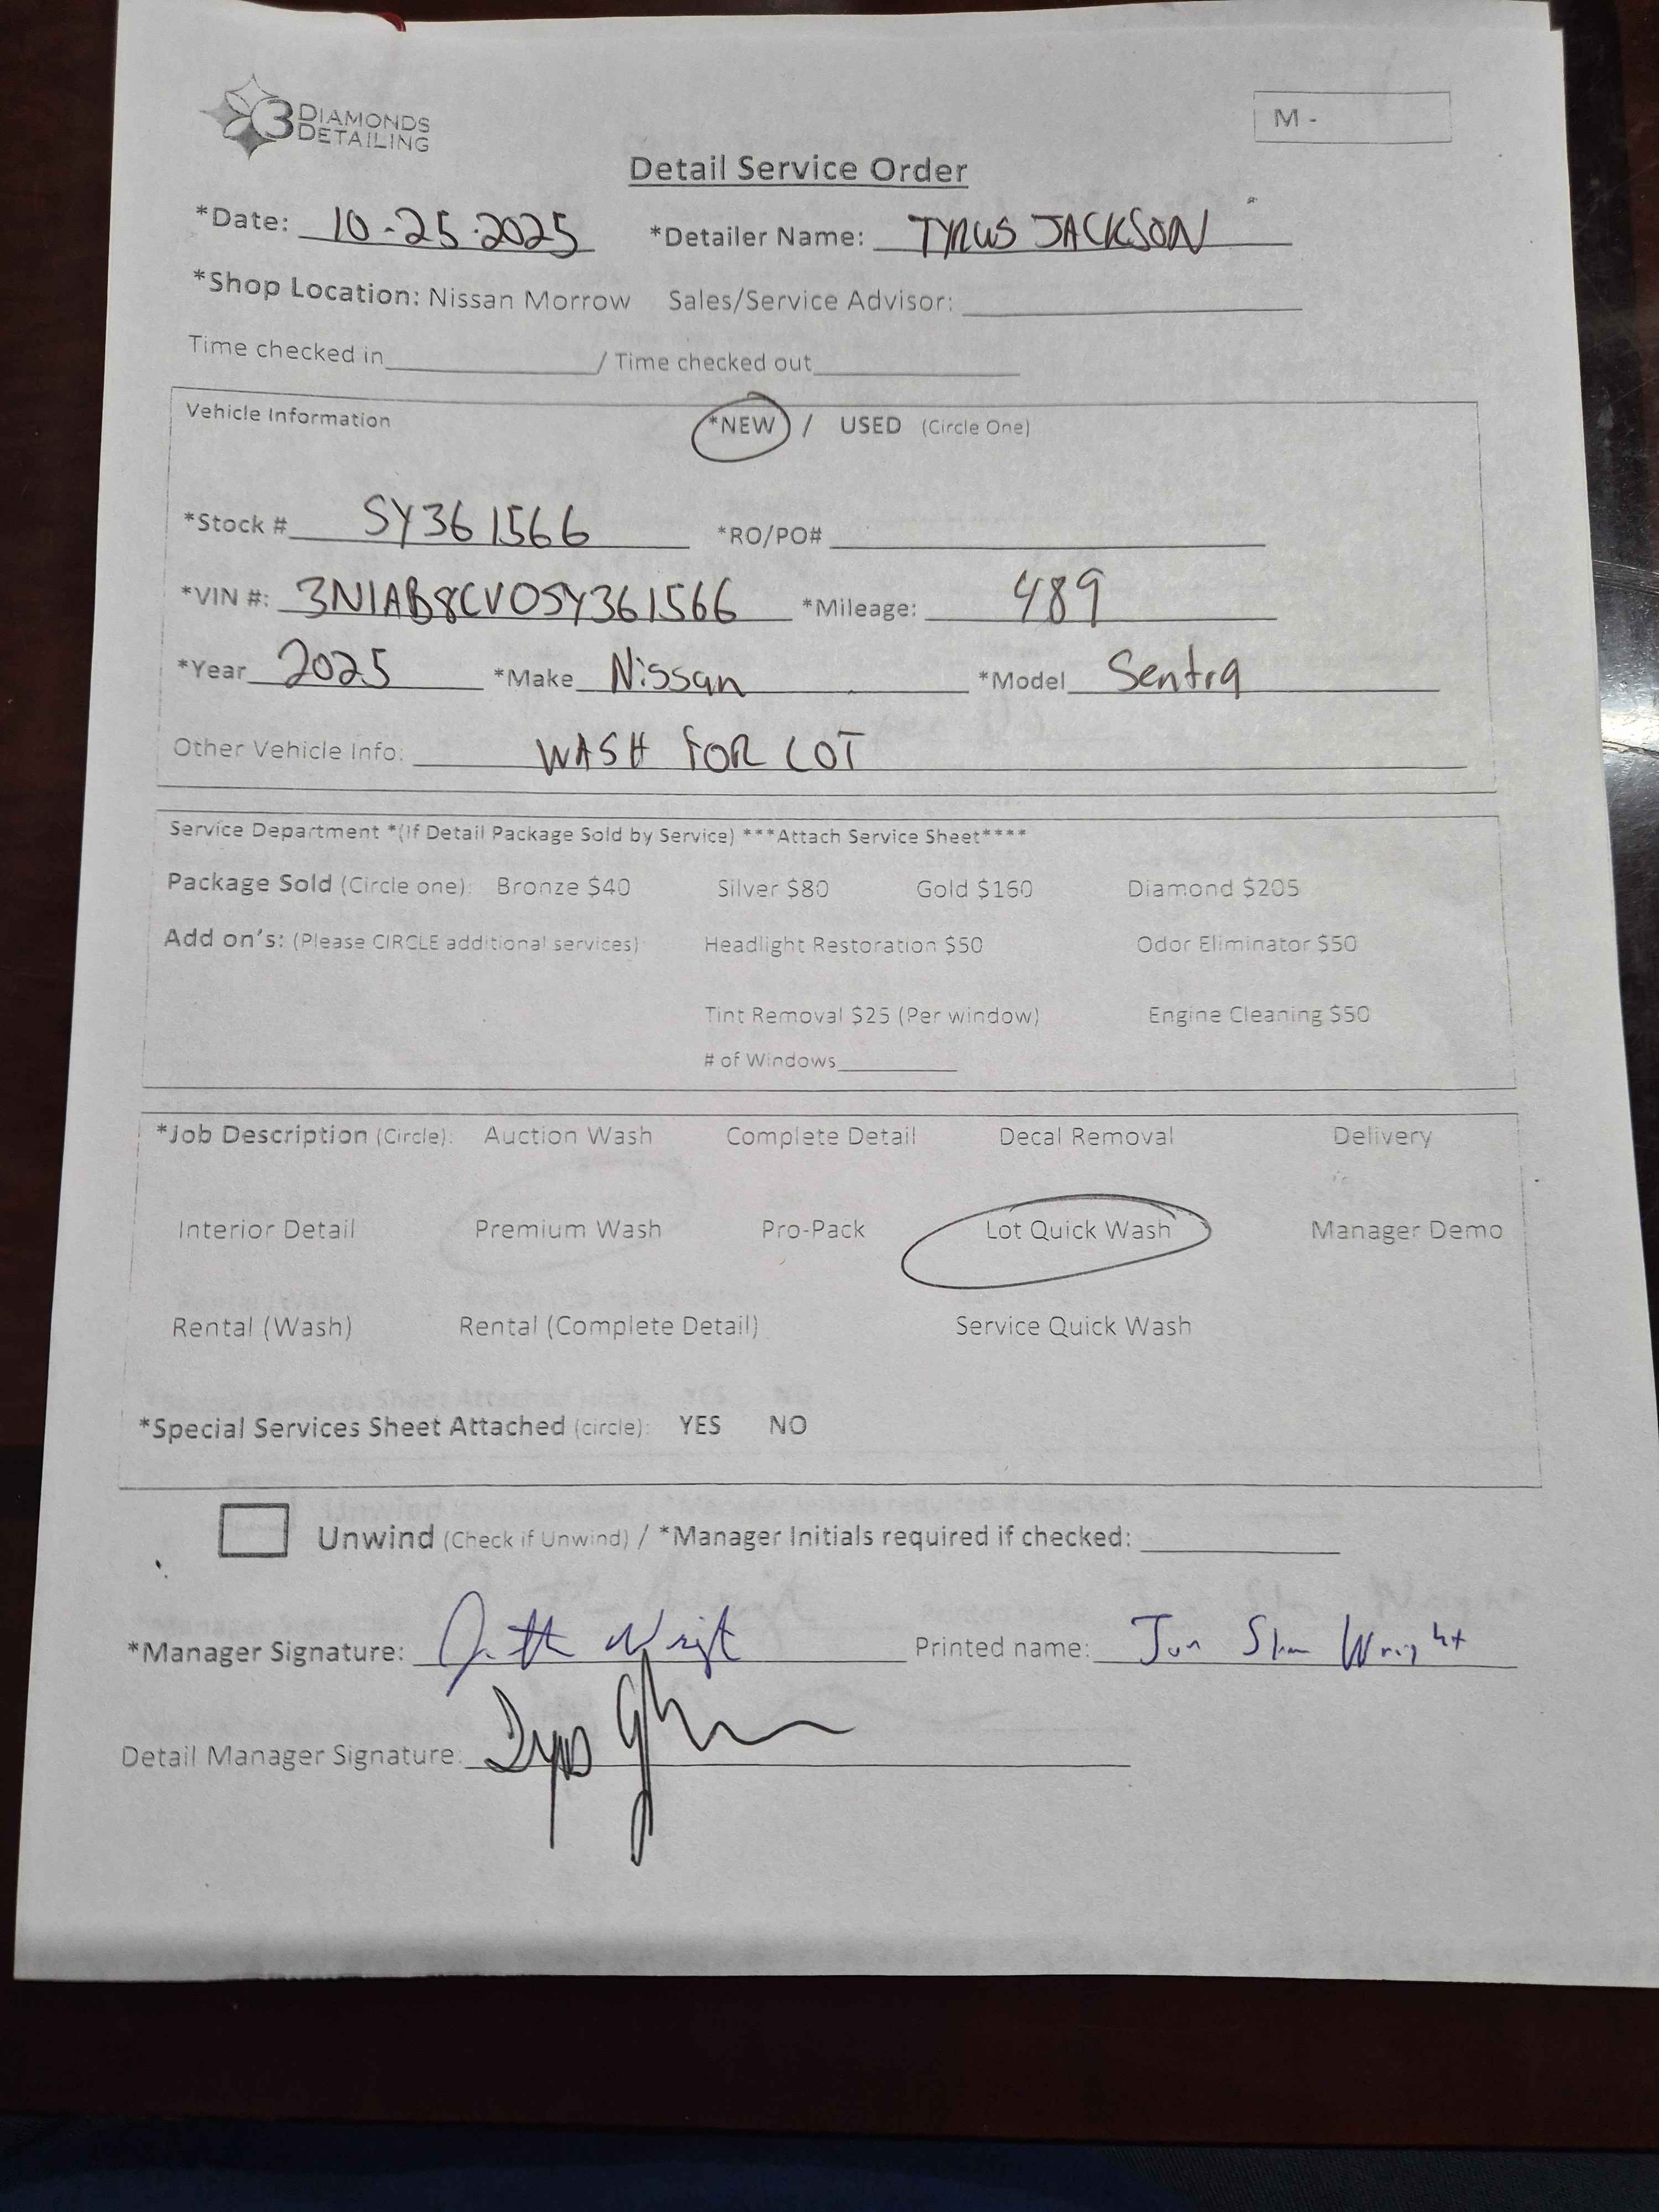 3 DIAMONDS DETAILING
M -
Detail Service Order
*Date: 10-25-2025 *Detailer Name: TYRUS JACKSON
*Shop Location: Nissan Morrow Sales/Service Advisor:
Time checked in / Time checked out
Vehicle Information *NEW / USED (Circle One)
*Stock # SY361566 *RO/PO#
*VIN #: 3N1AB8CV0SY361566 *Mileage: 489
*Year 2025 *Make Nissan *Model Sentra
Other Vehicle Info: WASH FOR LOT
Service Department *(If Detail Package Sold by Service) ***Attach Service Sheet****
Package Sold (Circle one): Bronze $40 Silver $80 Gold $160 Diamond $205
Add on's: (Please CIRCLE additional services) Headlight Restoration $50 Odor Eliminator $50
Tint Removal $25 (Per window) Engine Cleaning $50
# of Windows
*Job Description (Circle): Auction Wash Complete Detail Decal Removal Delivery
Interior Detail Premium Wash Pro-Pack Lot Quick Wash Manager Demo
Rental (Wash) Rental (Complete Detail) Service Quick Wash
*Special Services Sheet Attached (circle): YES NO
Unwind (Check if Unwind) / *Manager Initials required if checked:
*Manager Signature: Printed name: Wright
Detail Manager Signature: